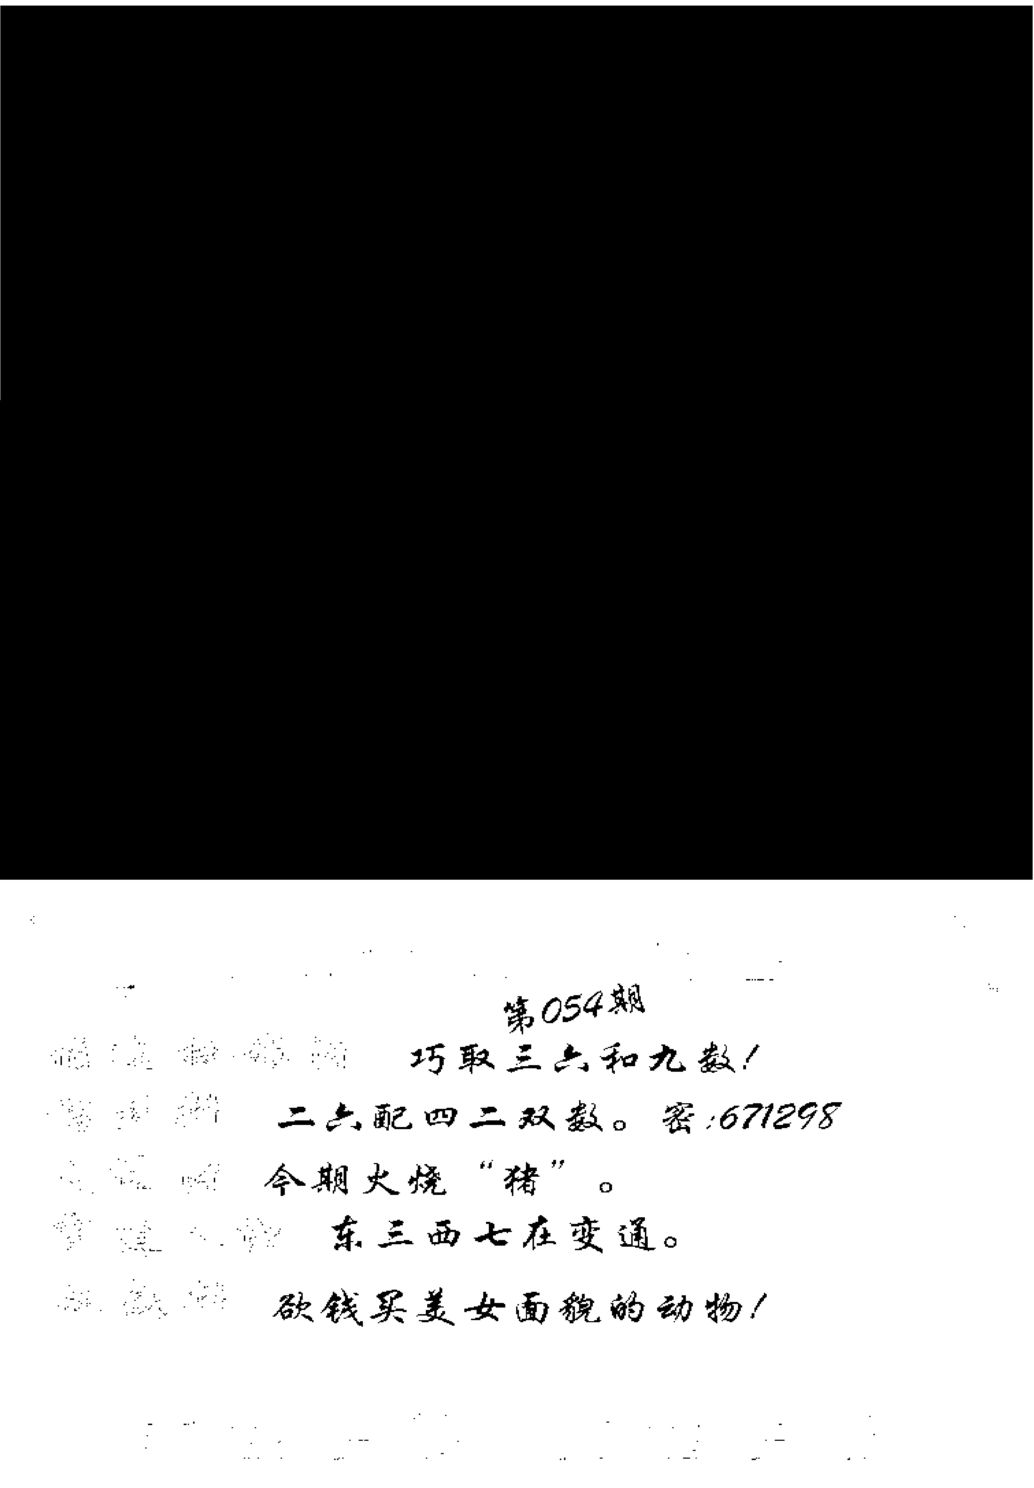 第054期
巧取三六和九数!
二六配四二双数。密:671298
今期火烧“猪”。
东三西七在变通。
欲钱买美女面貌的动物!